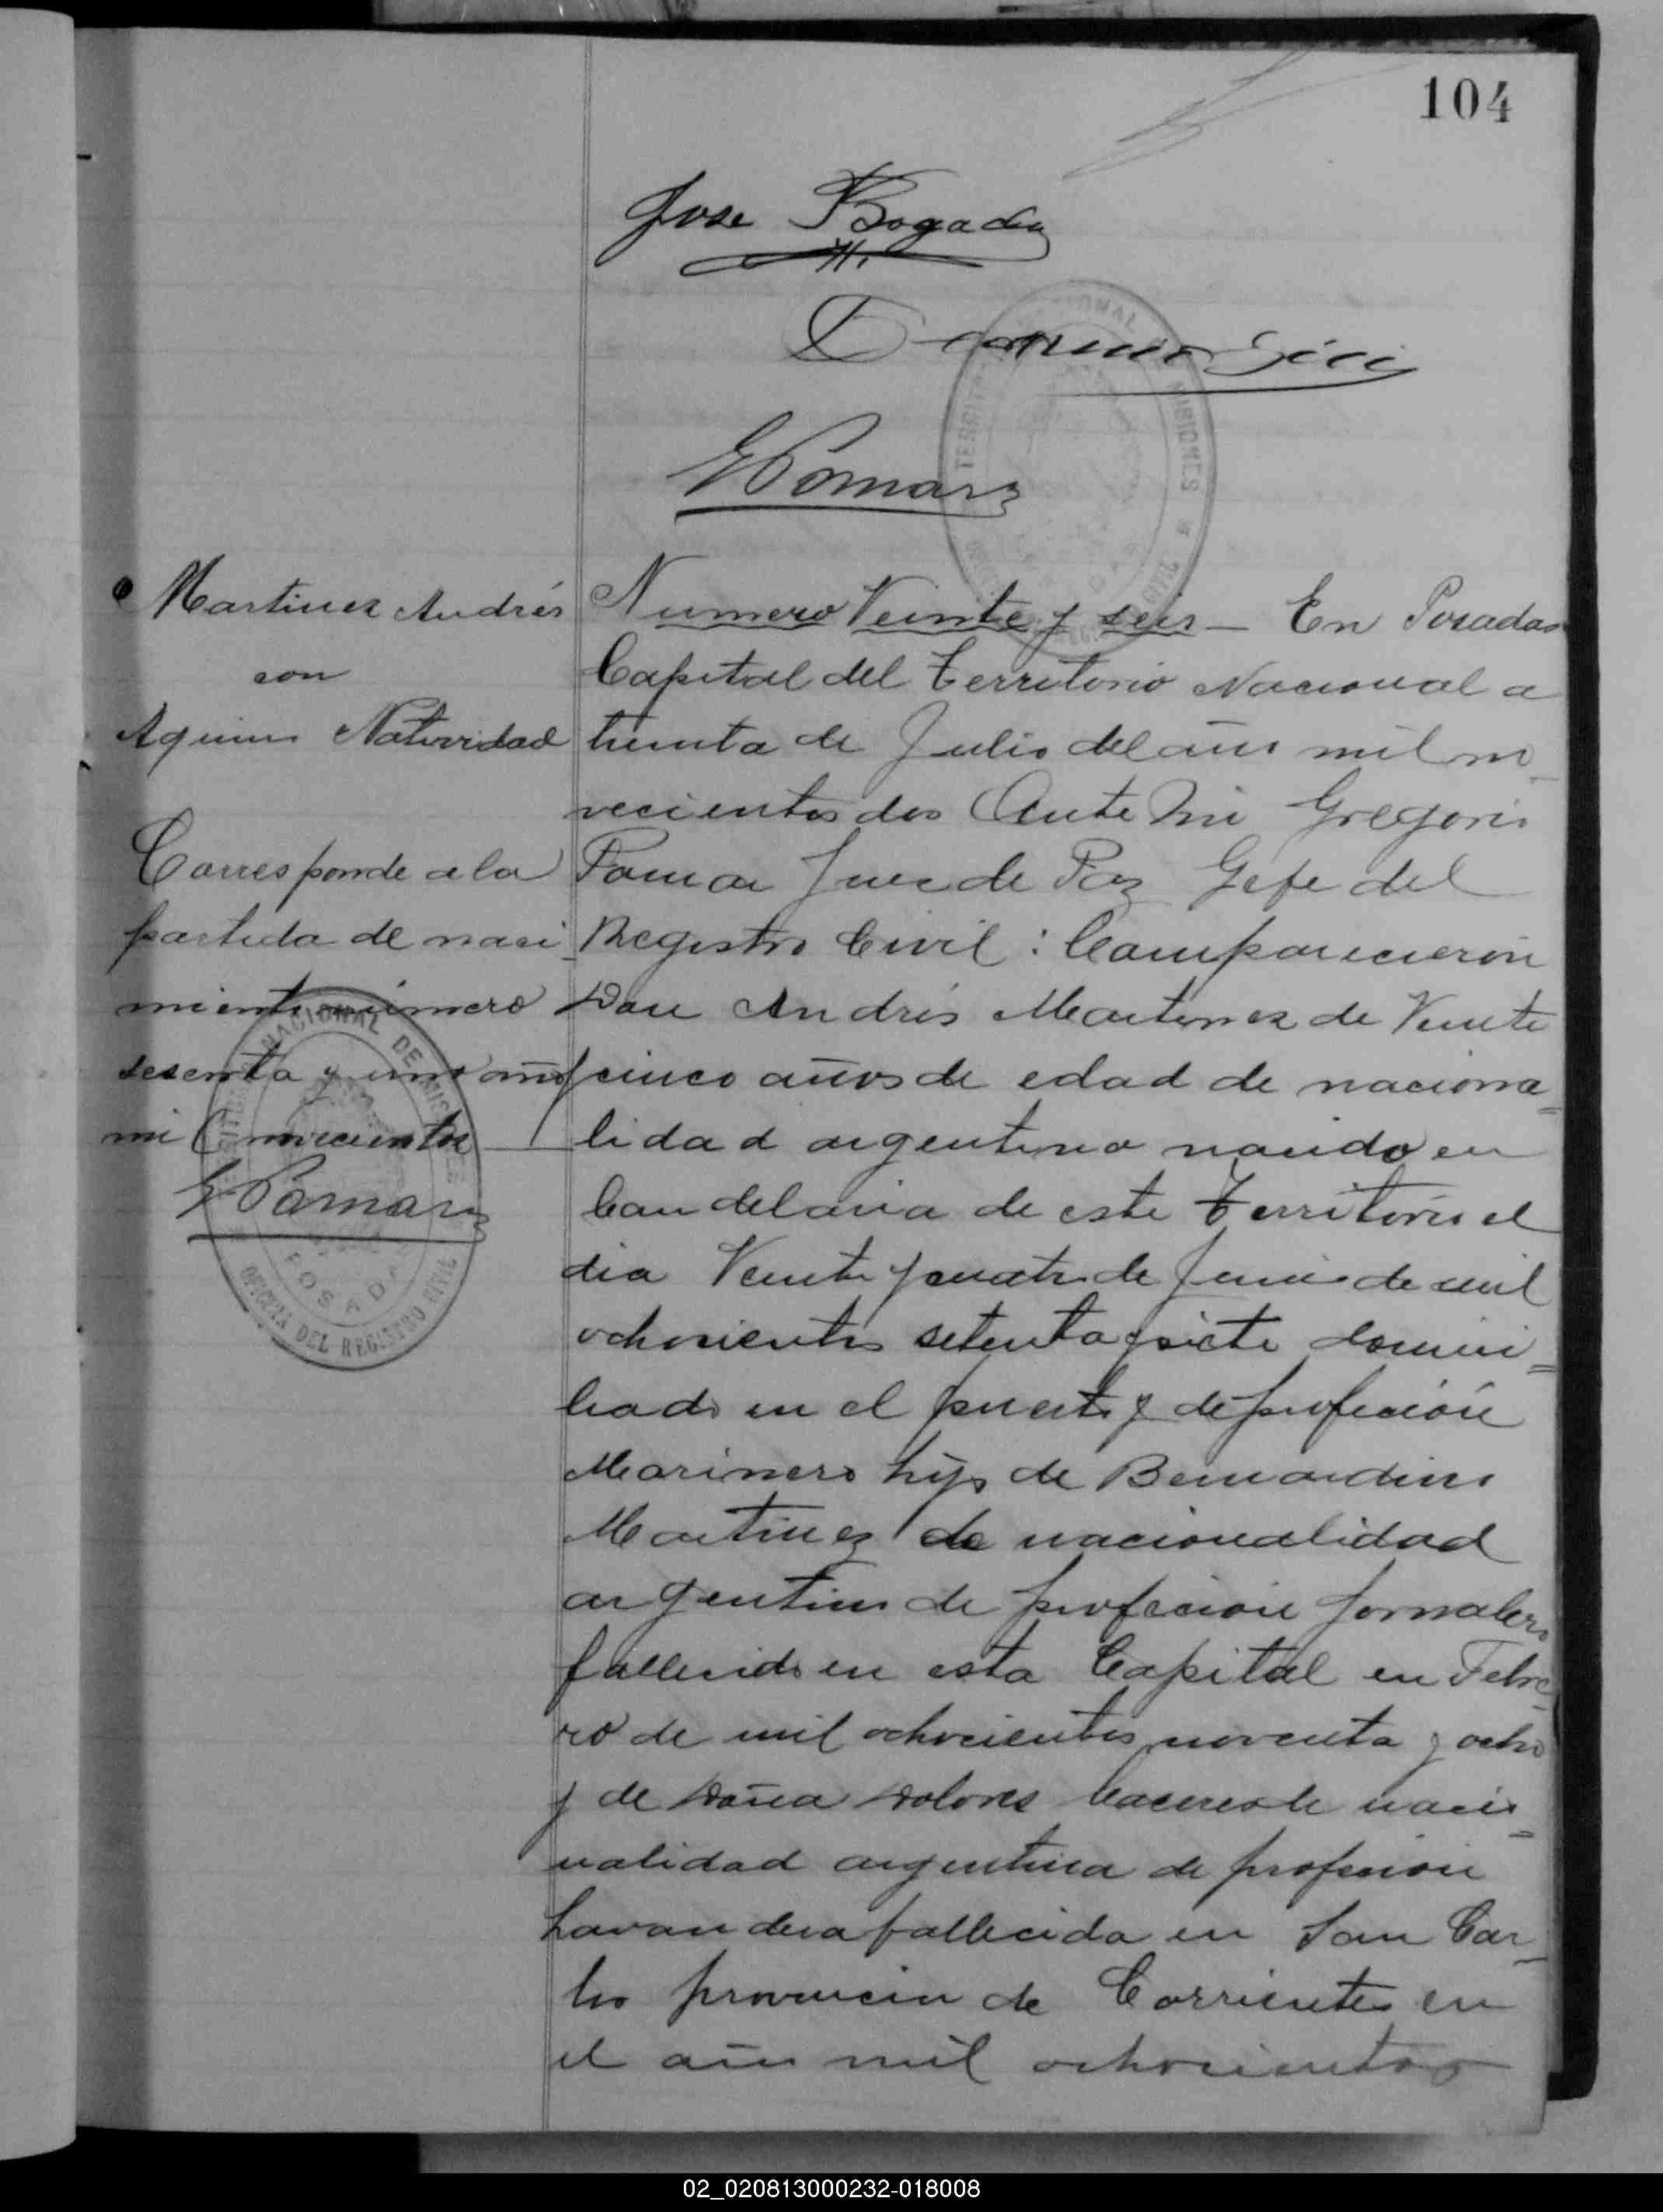 104
Jose Bogado
G Pomar
Martinez Andrés
con
Aquino Natividad
Corresponde a la
partida de naci
miento número
sesenta y uno año
mil novecientos
G Pomar
TERRITORIO NACIONAL DE MISIONES
POSADAS
OFICINA DEL REGISTRO CIVIL
Numero Veinte y seis — En Posadas
Capital del Territorio Nacional a
treinta de Julio del año mil no_
vecientos dos Ante Mi Gregorio
Pomar Juez de Paz Gefe del
Registro Civil : Comparecieron
Don Andrés Martinez de Veinte
y cinco años de edad de naciona=
lidad argentino nacido en
Candelaria de este Territorio el
dia Veinte y cuatro de Junio de mil
ochocientos setenta y siete domici=
liado en el puerto y de profeción
Marinero hijo de Bernardino
Martinez de nacionalidad
argentino de profecion Jornalero
fallecido en esta Capital en Febre
ro de mil ochocientos noventa y ocho
y de Doña Dolores Caceres de nacio=
nalidad argentina de profesion
Lavandera fallecida en San Car_
los provincia de Corrientes en
el año mil ochocientos
02_020813000232-018008